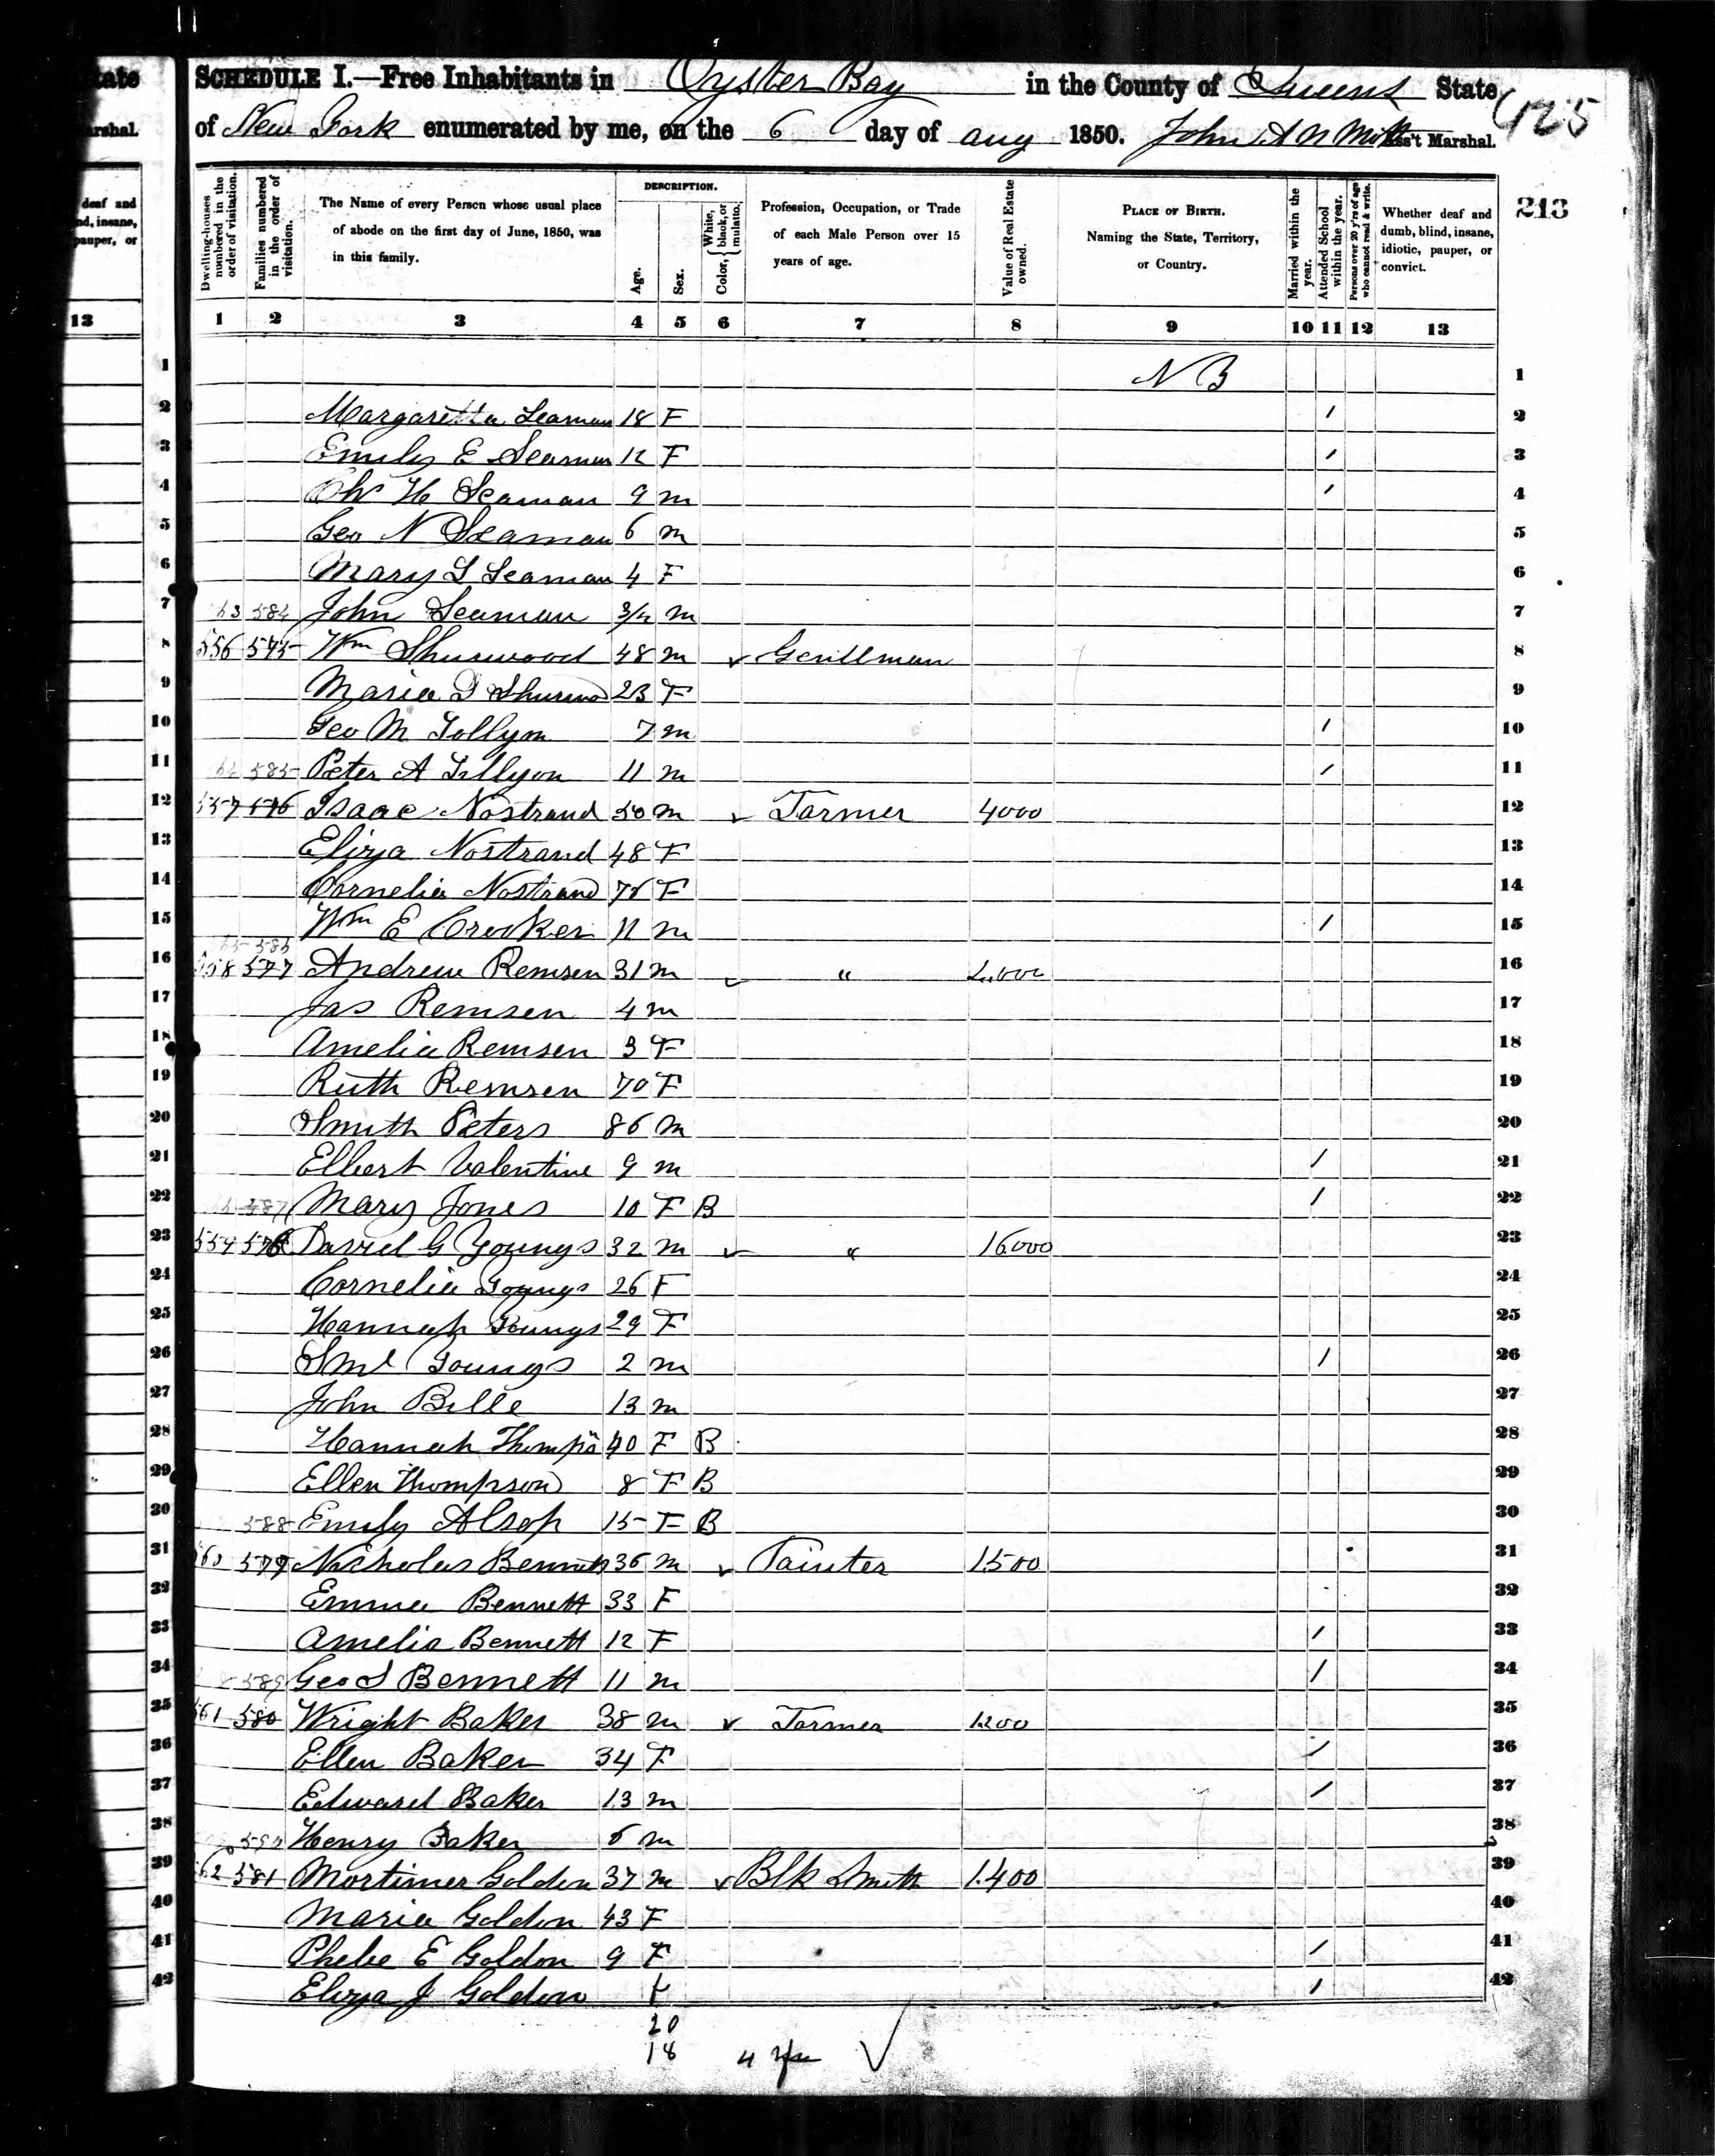 tate
arshal.
deaf and
nd, insane,
pauper, or
13
SCHEDULE I.—Free Inhabitants in Oyster Bay in the County of Queens State
of New York enumerated by me, on the 6 day of Aug 1850. John A N Mott Ass't Marshal.
425
213
Dwelling-houses numbered in the order of visitation.
Families numbered in the order of visitation.
The Name of every Person whose usual place of abode on the first day of June, 1850, was in this family.
DESCRIPTION.
Age.
Sex.
Color, White, black, or mulatto.
Profession, Occupation, or Trade of each Male Person over 15 years of age.
Value of Real Estate owned.
PLACE OF BIRTH. Naming the State, Territory, or Country.
Married within the year.
Attended School within the year.
Persons over 20 y'rs of age who cannot read & write.
Whether deaf and dumb, blind, insane, idiotic, pauper, or convict.
1 2 3 4 5 6 7 8 9 10 11 12 13
1 1
2 Margaretta Seaman 18 F / 2
3 Emily E Seaman 12 F / 3
4 H Seaman 9 m / 4
5 Geo N Seaman 6 m 5
6 Mary L Seaman 4 F 6
7 584 John Seaman 3/12 m 7
8 556 575 Wm Shurwood 48 m ✓ Gentleman 8
9 Maria 23 F 9
10 Geo M 7 m / 10
11 585 Peter A 11 m / 11
12 557 576 Isaac Nostrand 50 m ✓ Farmer 4000 12
13 Eliza Nostrand 48 F 13
14 Cornelia Nostrand F 14
15 Wm E Crooker 11 m / 15
16 558 577 Andrew Remsen 31 m ✓ " 16
17 Jas Remsen 4 m 17
18 Amelia Remsen 3 F 18
19 Ruth Remsen 70 F 19
20 Smith Peters 86 m 20
21 Elbert Valentine 9 m / 21
22 587 Mary Jones 10 F B / 22
23 559 578 David G Youngs 32 m ✓ " 16000 23
24 Cornelia Youngs 26 F 24
25 Hannah Youngs 29 F 25
26 Youngs 2 m / 26
27 John 13 m 27
28 Hannah Thompsn 40 F B 28
29 Ellen Thompson 8 F B 29
30 588 Emily Alsop 15 F B 30
31 560 579 Nicholas Bennett 36 m ✓ Painter 1500 31
32 Emma Bennett 33 F 32
33 Amelia Bennett 12 F / 33
34 589 Geo S Bennett 11 m / 34
35 561 580 Wright Baker 38 m ✓ Farmer 1200 35
36 Ellen Baker 34 F / 36
37 Edward Baker 13 m / 37
38 Henry Baker 6 m 38
39 562 581 Mortimer Golden 37 m ✓ Blk Smith 1400 39
40 Maria Golden 43 F 40
41 Phebe E Golden 9 F / 41
42 Eliza J Golden F / 42
20
18 4 ✓